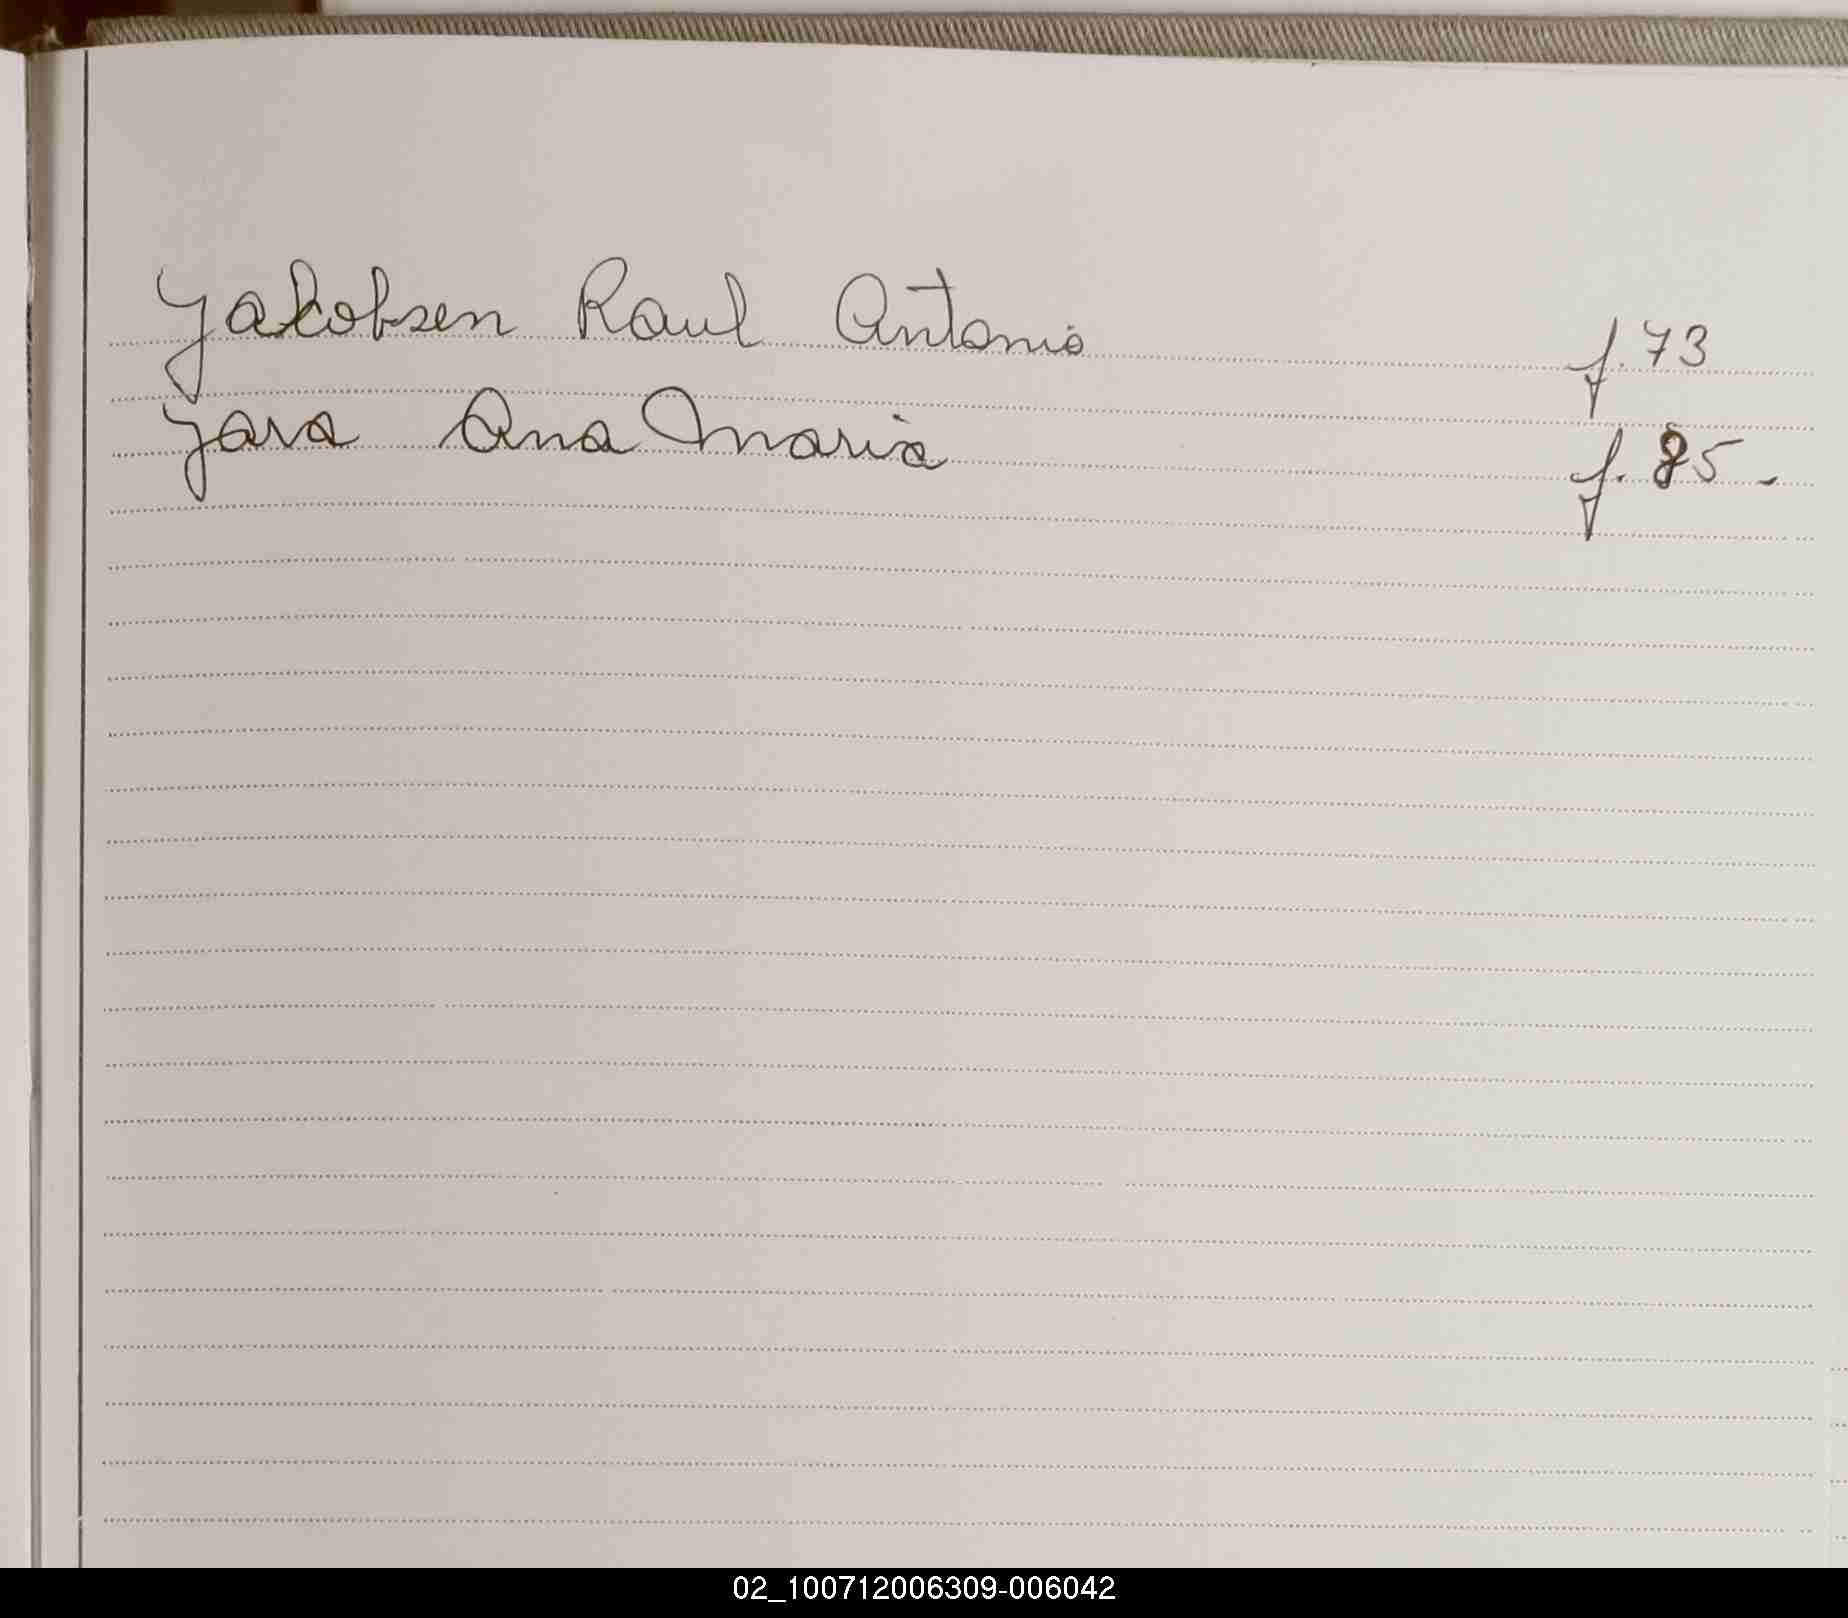 Jakobsen Raul Antonio f. 73
Jara Ana Maria f. 85 -
02_100712006309-006042